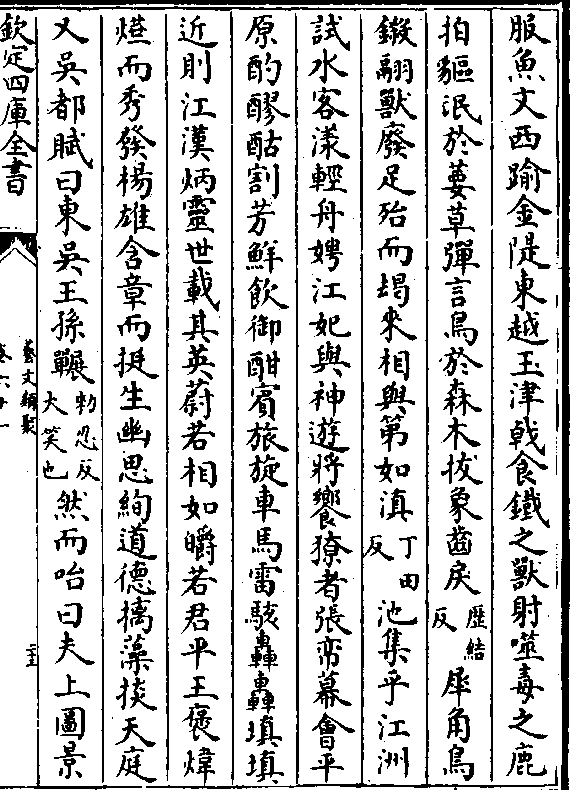 服魚文西踰金隄東越玉津戟食鐵之獸射噬毒之鹿
拍貙氓於葽草彈言鳥於森木拔象齒戾歷結反犀角鳥
鎩翮獸廢足殆而朅來相與第如滇丁田反池集乎江洲
試水客漾輕舟娉江妃與神遊將饗獠者張帟幕會平
原酌醪酤割芳鮮飲御酣賓旅旋車馬雷駭轟轟填填
近則江漢炳靈世載其英蔚若相如皭若君平王褒煒
燁而秀發楊雄含章而挺生幽思絢道德摛藻掞天庭
又吳都賦曰東吳王孫囅勑忍反大笑也然而咍曰夫上圖景
欽定四庫全書
藝文類聚
卷六十一